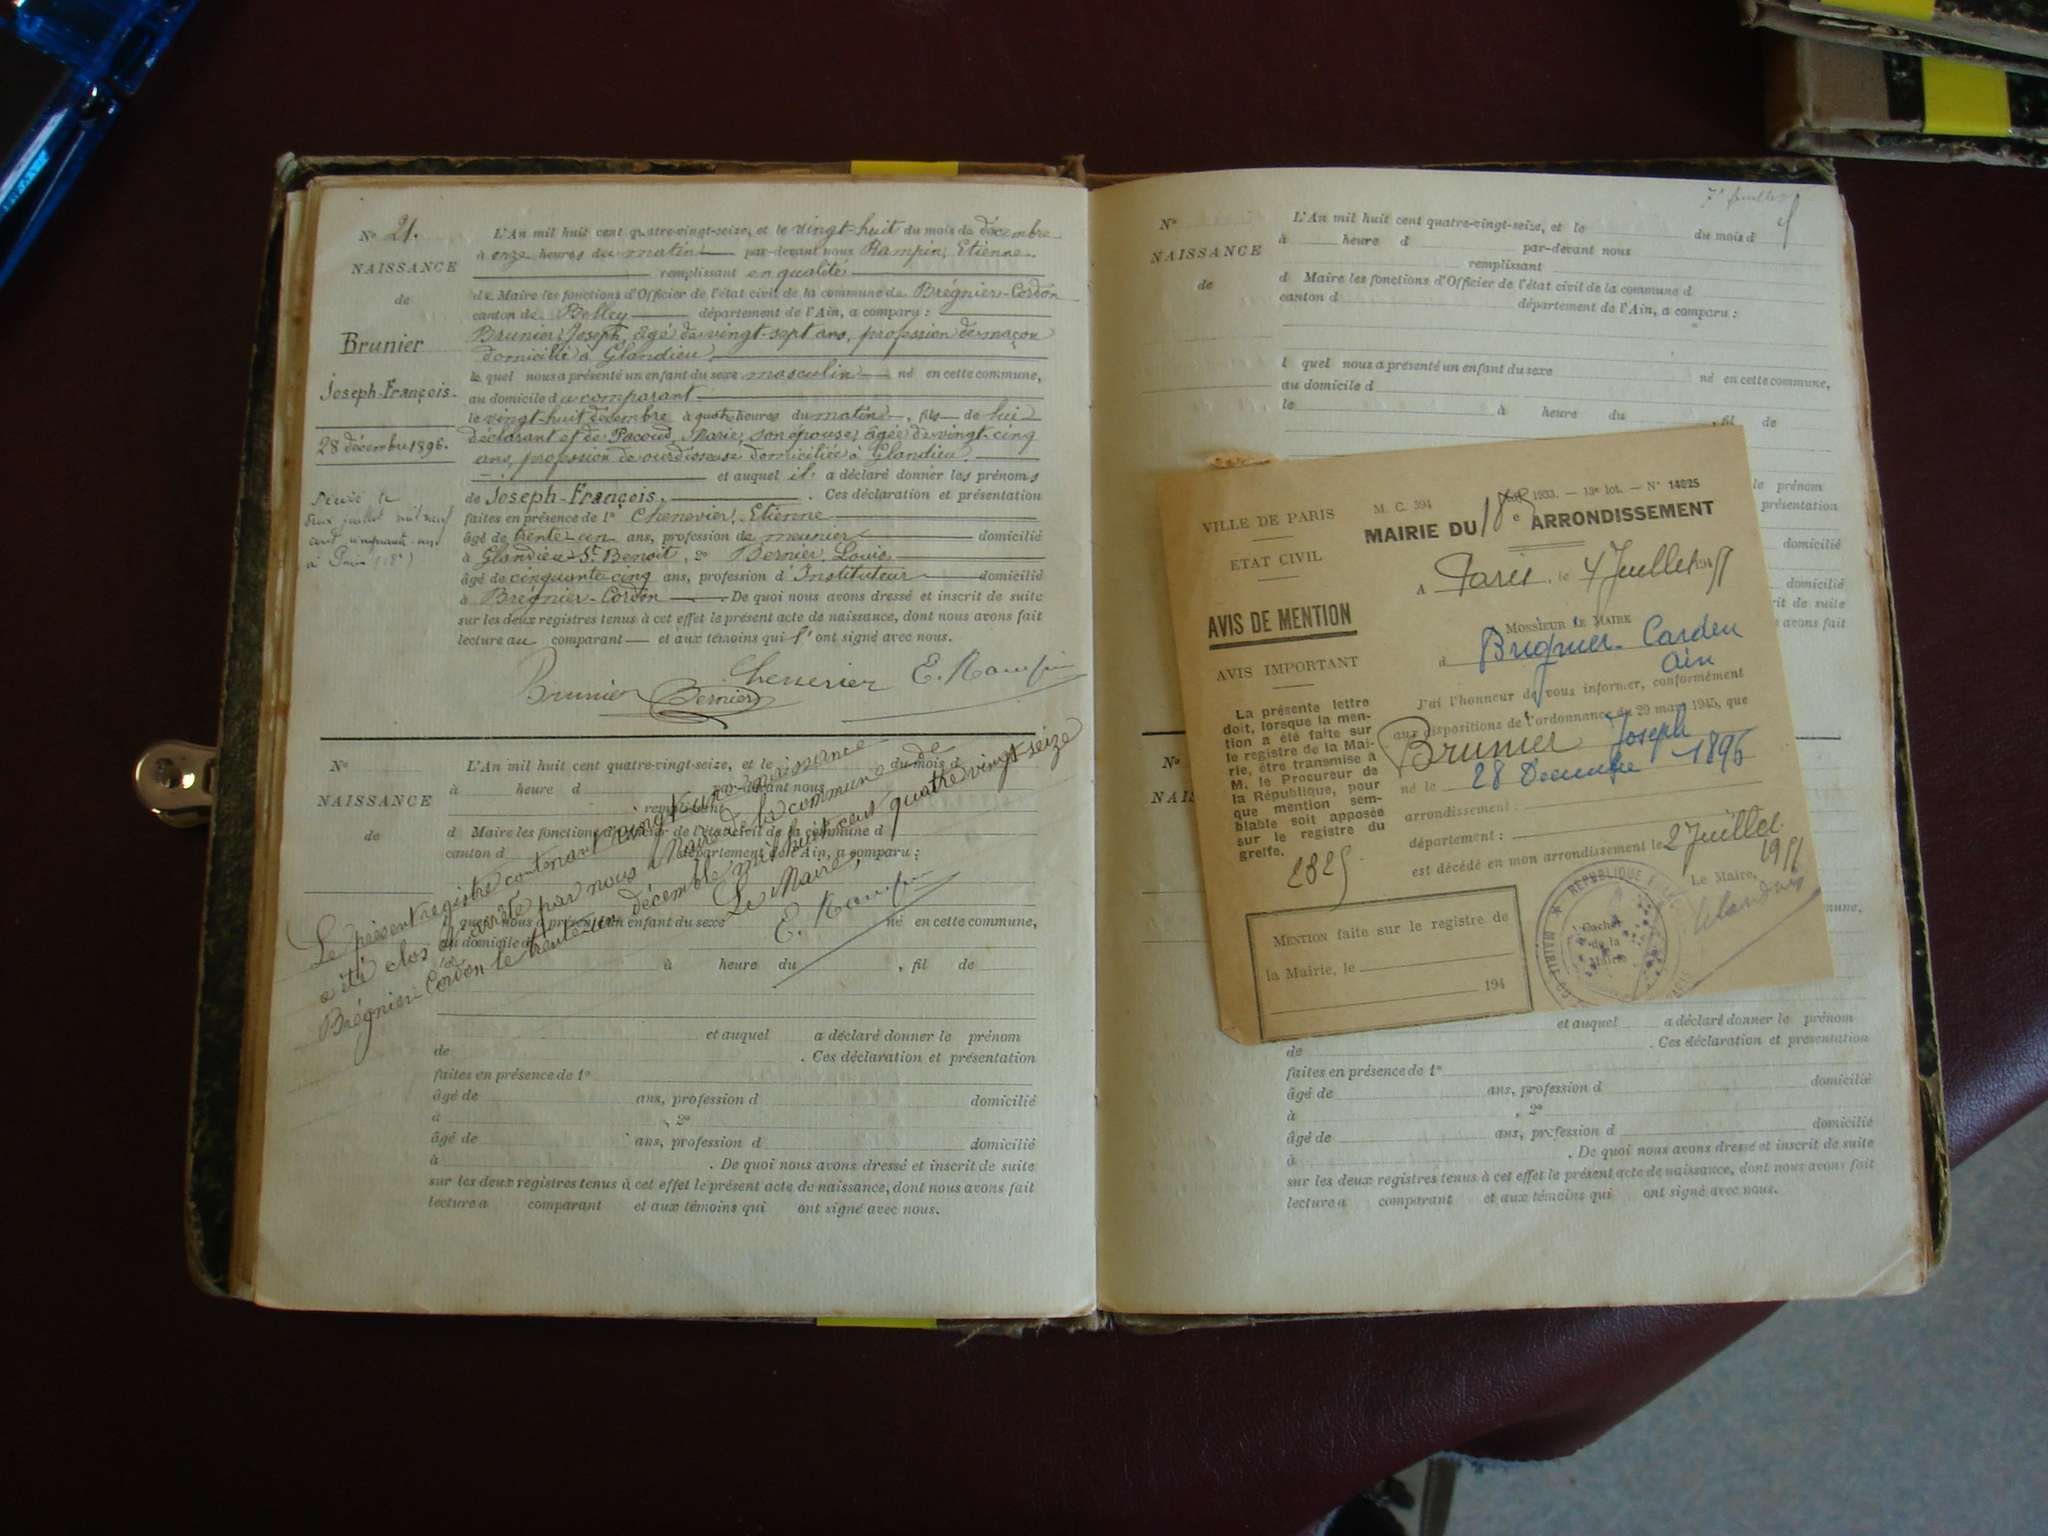 N° 21.
NAISSANCE
de
Brunier
Joseph-François.
28 décembre 1896.
Décédé le
deux juillet mil neuf
cent cinquante-un
à Paris (18e)
L'An mil huit cent quatre-vingt-seize, et le vingt-huit du mois de décembre
à onze heures du matin par-devant nous Rampin, Etienne.
remplissant en qualité
de Maire les fonctions d'Officier de l'état civil de la commune de Brégnier-Cordon
canton de Belley département de l'Ain, a comparu :
Brunier, Joseph, âgé de vingt-sept ans, profession de maçon
domicilié à Glandieu
le quel nous a présenté un enfant du sexe masculin né en cette commune,
au domicile du comparant
le vingt-huit décembre à quatre heures du matin, fils de lui
déclarant et de Pacoud, Marie, son épouse, âgée de vingt-cinq
ans, profession de ourdisseuse domiciliée à Glandieu.
et auquel il a déclaré donner les prénoms
de Joseph-François. Ces déclaration et présentation
faites en présence de 1° Chenevier, Etienne
âgé de trente-un ans, profession de meunier domicilié
à Glandieu-St Benoit, 2° Bernier, Louis
âgé de cinquante cinq ans, profession d'Instituteur domicilié
à Brégnier-Cordon. De quoi nous avons dressé et inscrit de suite
sur les deux registres tenus à cet effet le présent acte de naissance, dont nous avons fait
lecture au comparant et aux témoins qui l'ont signé avec nous.
Brunier Bernier Chenevier E. Rampin
N°
NAISSANCE
de
L'An mil huit cent quatre-vingt-seize, et le du mois d
à heure d par-devant nous
remplissant
d Maire les fonctions d'Officier de l'état civil de la commune d
canton d département de l'Ain, a comparu :
l quel nous a présenté un enfant du sexe né en cette commune,
au domicile d
à heure du , fil de
Le présent registre contenant vingt-une naissance
a été clos et arrêté par nous Maire de la commune de
Brégnier-Cordon le trente-un décembre mil huit cent quatre vingt-seize
Le Maire,
E. Rampin
et auquel a déclaré donner le prénom
de . Ces déclaration et présentation
faites en présence de 1°
âgé de ans, profession d domicilié
à , 2°
âgé de ans, profession d domicilié
à . De quoi nous avons dressé et inscrit de suite
sur les deux registres tenus à cet effet le présent acte de naissance, dont nous avons fait
lecture a comparant et aux témoins qui ont signé avec nous.
7e feuillet
N°
NAISSANCE
de
L'An mil huit cent quatre-vingt-seize, et le du mois d
à heure d par-devant nous
remplissant
d Maire les fonctions d'Officier de l'état civil de la commune d
canton d département de l'Ain, a comparu :
l quel nous a présenté un enfant du sexe né en cette commune,
au domicile d
le à heure du , fil de
le prénom
présentation
domicilié
domicilié
rit de suite
avons fait
VILLE DE PARIS
ETAT CIVIL
AVIS DE MENTION
AVIS IMPORTANT
La présente lettre
doit, lorsque la men-
tion a été faite sur
le registre de la Mai-
rie, être transmise à
M. le Procureur de
la République, pour
que mention sem-
blable soit apposée
sur le registre du
greffe.
2325
M. C. 394 1933. — 13e lot. — N° 14025
MAIRIE DU 18e ARRONDISSEMENT
A Paris, le 4 Juillet 1951
MONSIEUR LE MAIRE
d Brignier-Carden
Ain
J'ai l'honneur de vous informer, conformément
aux dispositions de l'ordonnance du 29 mars 1945, que
Brunier Joseph
né le 28 Decembre 1896
arrondissement :
département :
est décédé en mon arrondissement le 2 Juillet
1951
Le Maire,
Cachet
de la
Mairie
MENTION faite sur le registre de
la Mairie, le
194
N°
NAI
mune,
et auquel a déclaré donner le prénom
de . Ces déclaration et présentation
faites en présence de 1°
âgé de ans, profession d domicilié
à , 2°
âgé de ans, profession d domicilié
à . De quoi nous avons dressé et inscrit de suite
sur les deux registres tenus à cet effet le présent acte de naissance, dont nous avons fait
lecture a comparant et aux témoins qui ont signé avec nous.